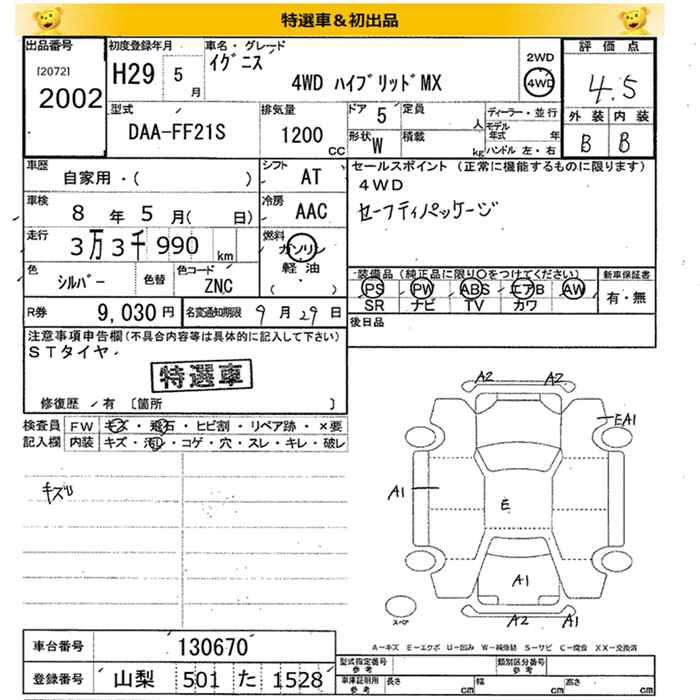 特選車＆初出品
出品番号
[2072]
2002
初度登録年月
H29 5 月
車名・グレード
イグニス
4WD ハイブリッドMX
2WD
4WD
評価点
4.5
外装 内装
B B
型式
DAA-FF21S
排気量
1200 cc
ドア 5
形状 W
定員 人
積載 kg
ディーラー・並行
モデル年式 年
ハンドル 左・右
車歴
自家用・( )
シフト
AT
車検
8 年 5 月( 日)
冷房
AAC
走行
3万3千990 km
燃料
ガソリン
軽油
( )
色
シルバー
色替
色コード
ZNC
R券
9,030 円
名変通知期限
9月29日
セールスポイント (正常に機能するものに限ります)
4WD
セーフティパッケージ
装備品 (純正品に限り○をつけてください)
PS PW ABS エアB AW
SR ナビ TV カワ
新車保証書
有・無
後日品
注意事項申告欄(不具合内容等は具体的に記入して下さい)
STタイヤ
特選車
修復歴 ・有 〔箇所 〕
検査員記入欄
FW キズ・飛石・ヒビ割・リペア跡・×要
内装 キズ・汚レ・コゲ・穴・スレ・キレ・破レ
キズり
A2 A2
EA1
A1
E
A1
A2 A1
スペア
A−キズ E−エクボ U−凹み W−補修跡 S−サビ C−腐食 XX−交換済
車台番号
130670
登録番号
山梨 501 た 1528
型式指定番号 参考
類別区分番号 参考
車庫証明用 参考
長さ cm 幅 cm 高さ cm